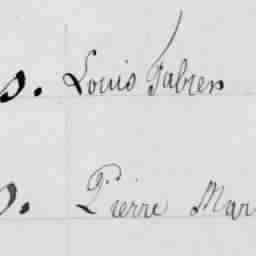 s. Louis Fabren
Pierre Mar